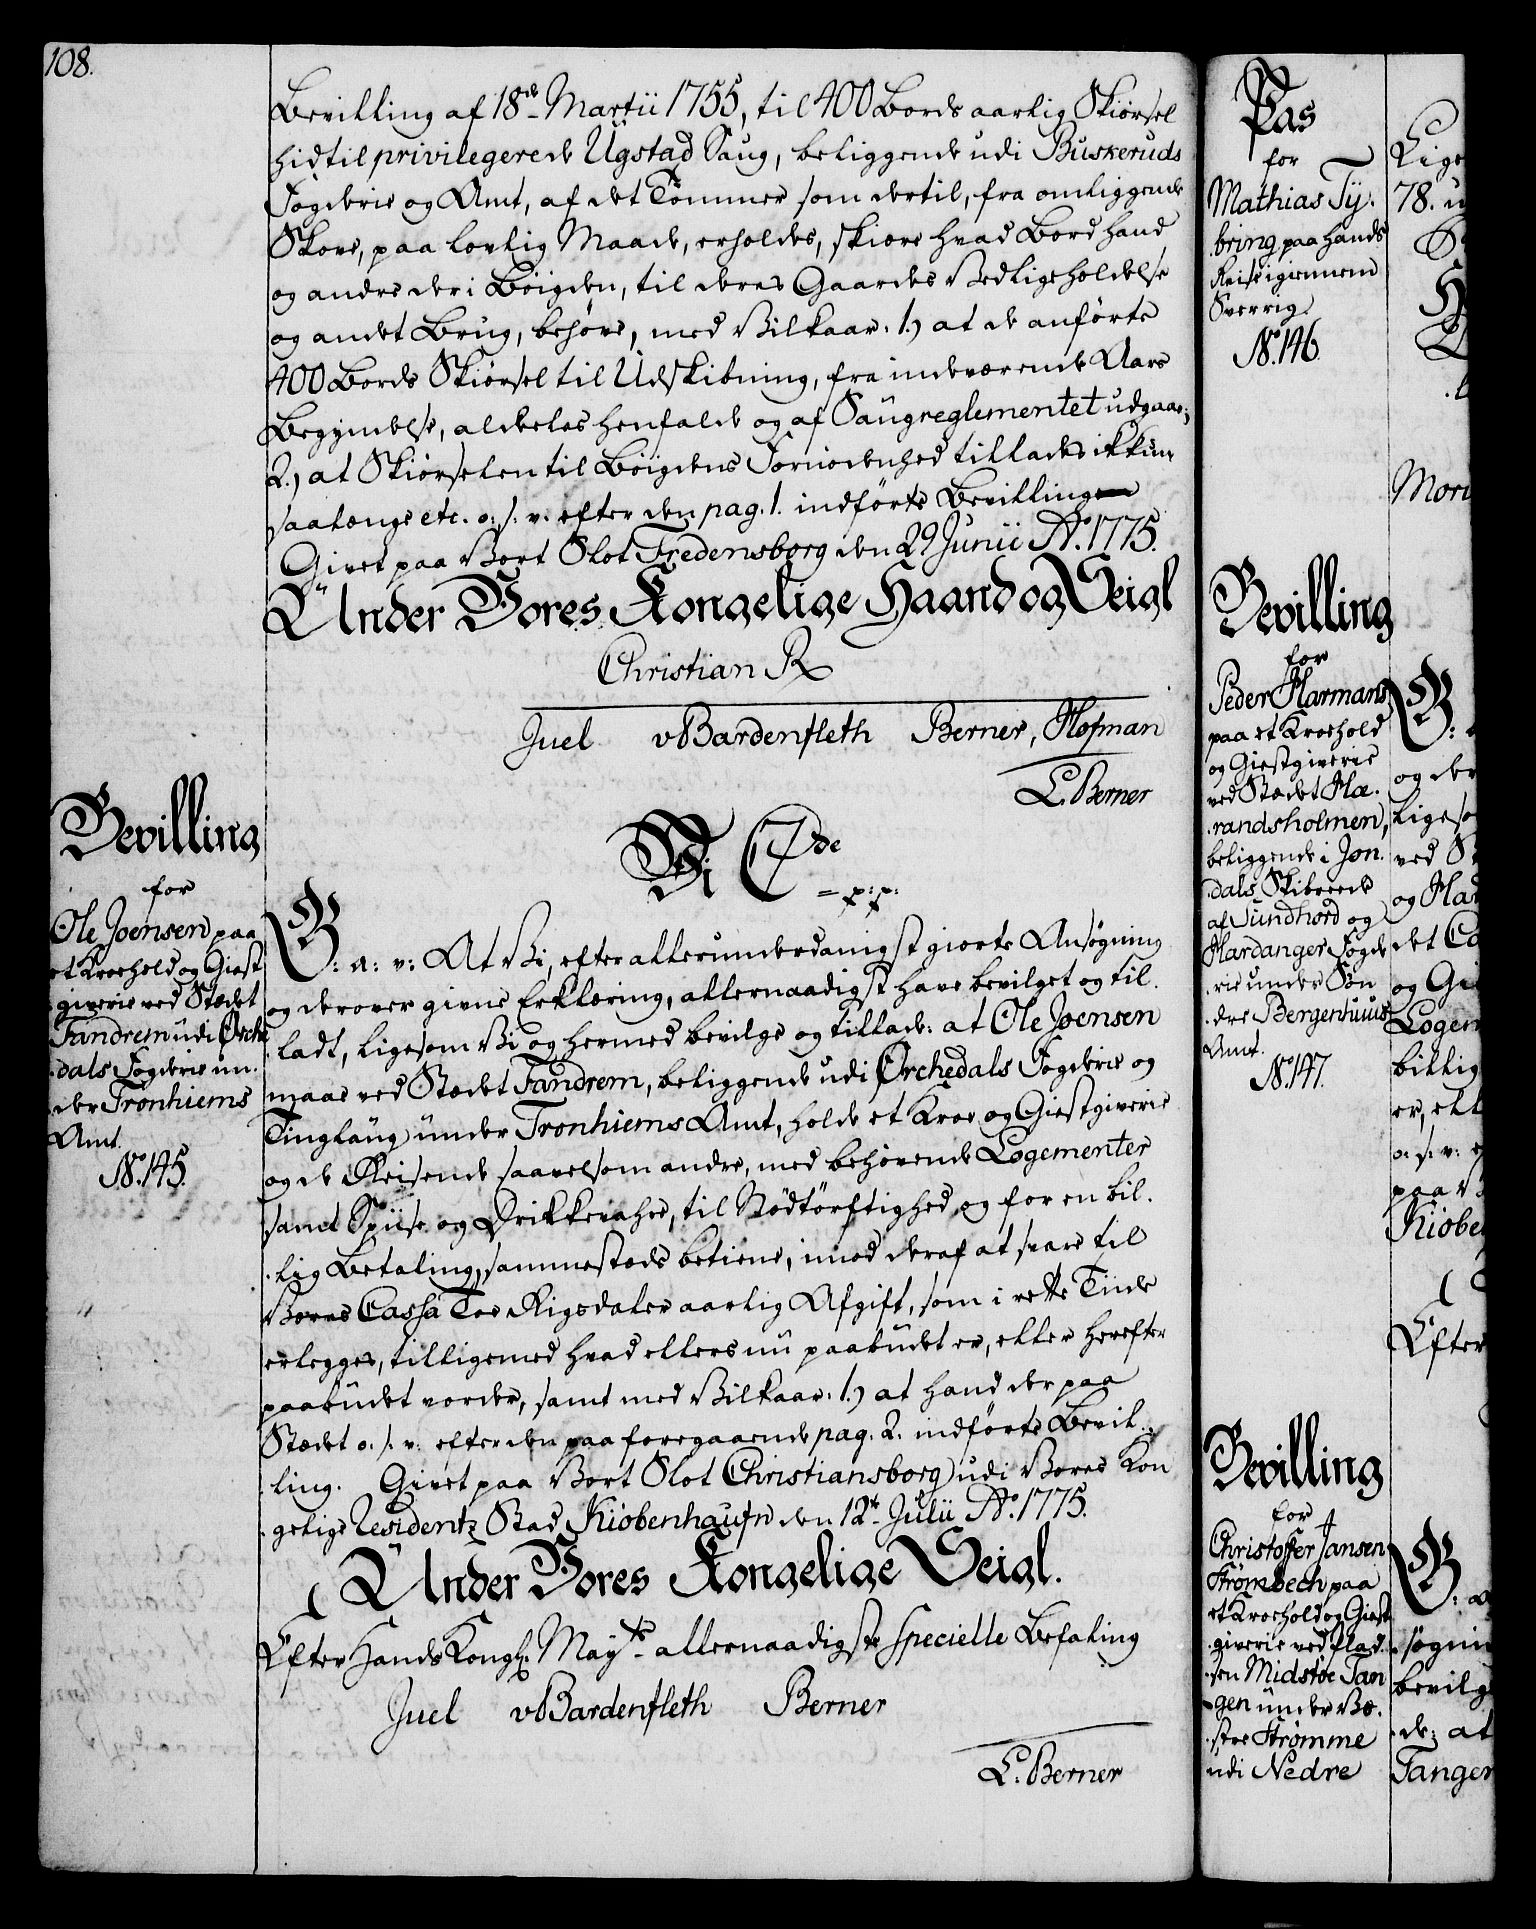 108.
Bevilling af 18de Martii 1755, til 400 Bords aarlig Skiørsel
hidtil privilegerede Ugstad Saug, beliggende udi Buskeruds
Fogderie og Amt, af det Tømmer som dertil, fra omliggende
Skove, paa lovlig Maade, erholdes, skiære hvad Bord hand
og andre der i Bøigden, til deres Gaardes Vedligeholdelse
og andet Brug, behøve, med Vilkaar: 1.) at de anførte
400 Bords Skiørsel til Udskibning, fra indeværende Aars
Begyndelse, aldeeles henfalde og af Saugreglementet udgaae;
2.) at Skiørselen til Bøigdens Fornødenhed tillades ikkun
saalænge etc. o: s: v: efter den pag. 1. indførte Bevilling
Givet paa Vort Slot Fredensborg den 29 Junii Ao. 1775.
Under Vores Kongelige Haand og Seigl
Christian R
Juel vBardenfleth Berner, Hofman
L. Berner
Bevilling
for
Ole Joensen paa
et Kroehold og Giest
giverie ved Stædet
Fandrem udi Ørche
dals Fogderie un
der Tronhiems
Amt.
No. 145.
Vi C 7de
= p: p:
G: a: v: At Vi, efter allerunderdanigst giorte Ansøgning
og derover givne Erklæring, allernaadigst have bevilget og til
ladt, ligesom Vi og hermed bevilge og tillade: at Ole Joensen
maae ved Stædet Fandrem, beliggende udi Ørchedals Fogderie og
Tinglaug under Tronhiems Amt, holde et Kroe og Giestgiverie
og de Reisende saavelsom andre, med behøvende Logementer
samt Spiise og Drikkevahre, til Nødtørftighed og for en bil
lig Betaling, sammestæds betiene, imod deraf at svare til
Vores Cassa Toe Rigsdaler aarlig Afgift, som i rette Tiide
erlegges, tilligemed hvad ellers nu paabudet er, eller herefter
paabudet vorder, samt med Vilkaar: 1.) at hand der paa
Stædet o. s. v: efter den paa foregaaende pag. 2. indførte Bevil
ling. Givet paa Vort Slot Christiansborg udi Vores Kon
gelige Residentz Stad Kiøbenhaufn den 12te Julii Ao. 1775.
Under Vores Kongelige Seigl.
Efter Hands Kongl. Mayts allernaadigste specielle Befaling
Juel vBardenfleth Berner
L. Berner
Pas
for
Mathias Ty
bring paa hands
Reise igiennem
Sverrig.
No. 146.
Bevilling
for
Peder Harmans
paa et Kroehold
og Giestgiverie
ved Stædet Hæ
randsholmen,
beliggende i Jon
dals Skibreede
af Sundhord og
Hardanger Fogde
rie under Søn
dre Bergenhuus
Amt.
No. 147.
Bevilling
for
Christoffer Jansen
Strømbech paa
et Kroehold og Giest
giverie ved Plad
sen Midstøe Tan
gen under Væ
stre Strømme
udi Nedre
Lige
78. u
Mor
G:
og der
ligeso
ved St
og Har
det Co
og Gi
Logem
billig
er, ell
o: s: v: e
paa V
Kiøbe
Efter
G: a
søgnin
bevilg
de: at
Tangen